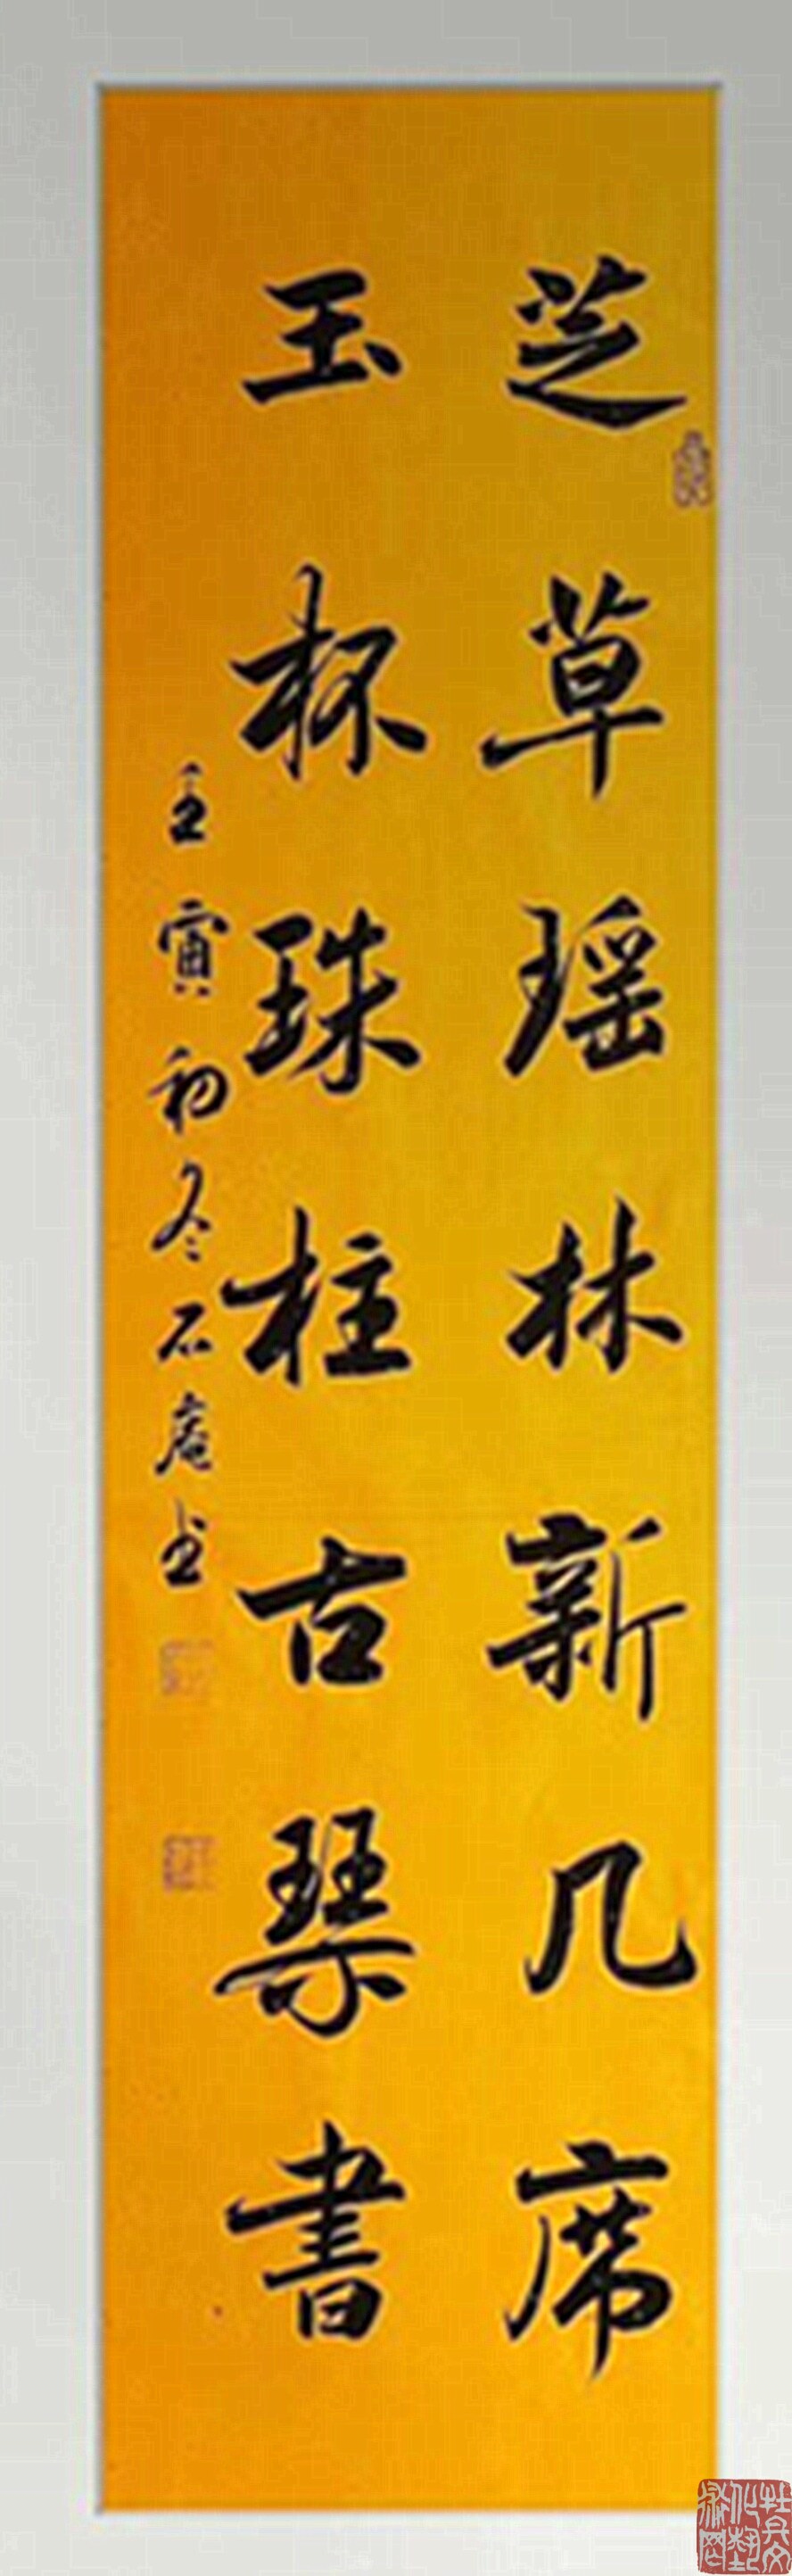 芝草瑶林新几席
玉杯珠柱古琴書
壬寅初冬石庵书